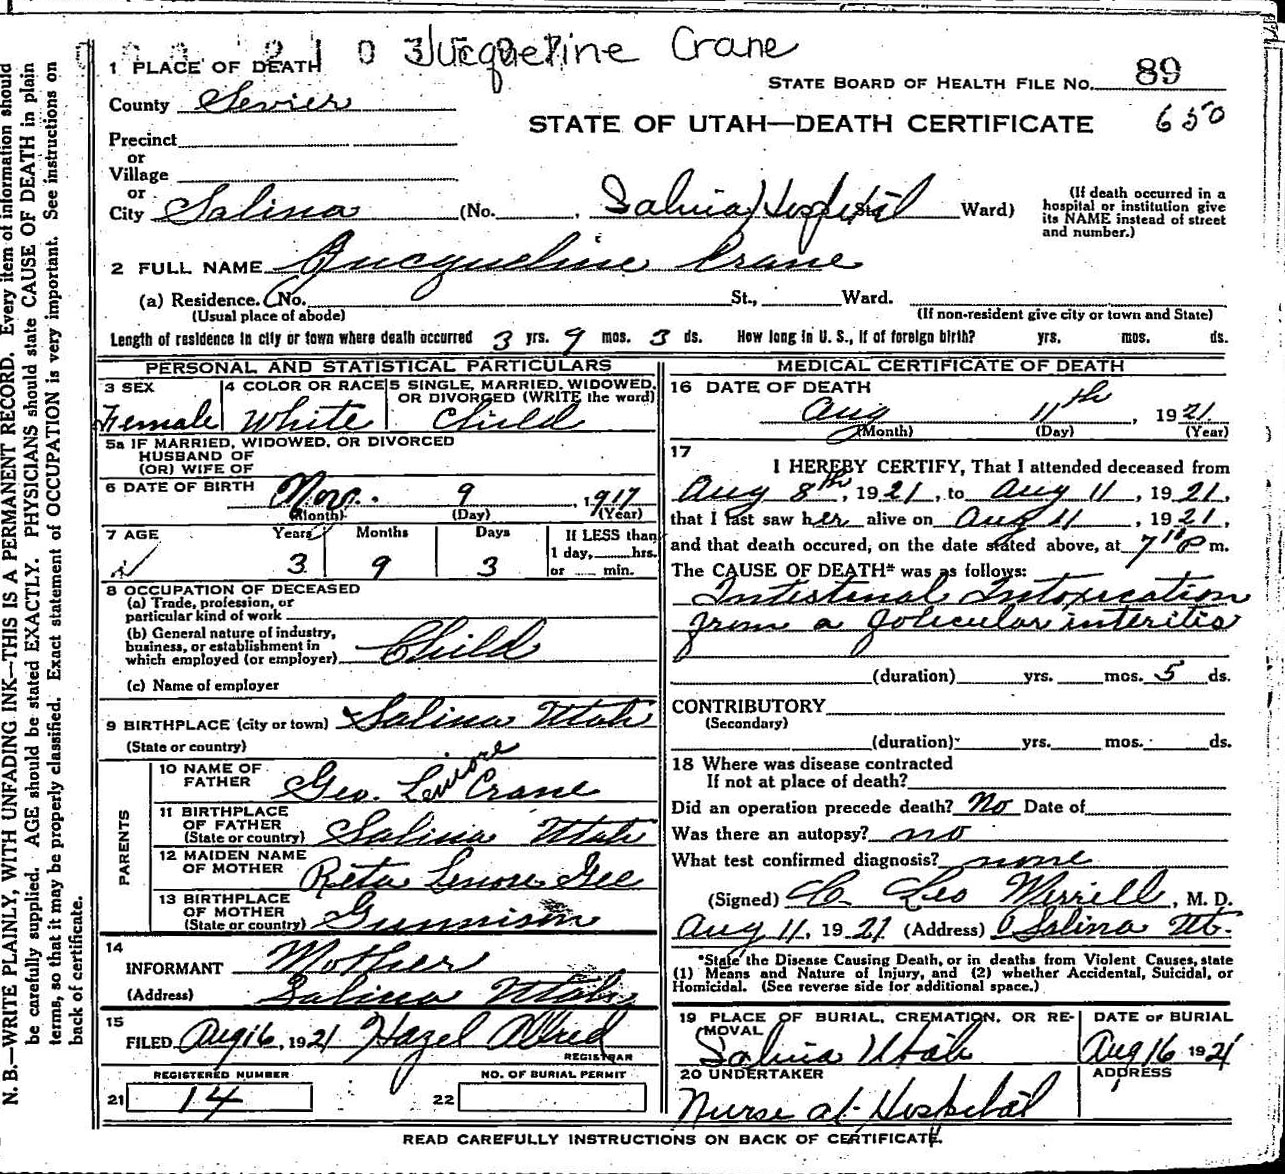 Jucqueline Crane
1 PLACE OF DEATH
STATE BOARD OF HEALTH FILE No. 89
County Sevier
STATE OF UTAH—DEATH CERTIFICATE 650
Precinct
or
Village
or
City Salina (No. , Salina Hospital Ward) (If death occurred in a hospital or institution give its NAME instead of street and number.)
2 FULL NAME Jucqueline Crane
(a) Residence. No. St., Ward.
(Usual place of abode) (If non-resident give city or town and State)
Length of residence in city or town where death occurred 3 yrs. 9 mos. 3 ds. How long in U. S., if of foreign birth? yrs. mos. ds.
PERSONAL AND STATISTICAL PARTICULARS
3 SEX Female
4 COLOR OR RACE White
5 SINGLE, MARRIED, WIDOWED, OR DIVORCED (WRITE the word) Child
5a IF MARRIED, WIDOWED, OR DIVORCED
HUSBAND OF
(OR) WIFE OF
6 DATE OF BIRTH Nov. 9, 1917
(Month) (Day) (Year)
7 AGE Years 3 Months 9 Days 3 If LESS than
1 day, hrs.
or min.
8 OCCUPATION OF DECEASED
(a) Trade, profession, or
particular kind of work
(b) General nature of industry,
business, or establishment in
which employed (or employer) Child
(c) Name of employer
9 BIRTHPLACE (city or town) Salina Utah
(State or country)
PARENTS
10 NAME OF FATHER Geo. Lenore Crane
11 BIRTHPLACE OF FATHER (State or country) Salina Utah
12 MAIDEN NAME OF MOTHER Reta Lenore Gee
13 BIRTHPLACE OF MOTHER (State or country) Gunnison
14
INFORMANT Mother
(Address) Salina Utah
15
FILED Aug 16, 1921 Hazel Allred
REGISTRAR
REGISTERED NUMBER NO. OF BURIAL PERMIT
21 14 22
MEDICAL CERTIFICATE OF DEATH
16 DATE OF DEATH
Aug 11th, 1921
(Month) (Day) (Year)
17
I HEREBY CERTIFY, That I attended deceased from
Aug 8th, 1921, to Aug 11, 1921,
that I last saw her alive on Aug 11, 1921,
and that death occured, on the date stated above, at 7 P m.
The CAUSE OF DEATH* was as follows:
Intestinal Intoxication
from a folicular interitis
(duration) yrs. mos. 5 ds.
CONTRIBUTORY
(Secondary)
(duration) yrs. mos. ds.
18 Where was disease contracted
If not at place of death?
Did an operation precede death? No Date of
Was there an autopsy? no
What test confirmed diagnosis? none
(Signed) C. Leo Merrill, M. D.
Aug 11, 1921 (Address) Salina Ut.
*State the Disease Causing Death, or in deaths from Violent Causes, state
(1) Means and Nature of Injury, and (2) whether Accidental, Suicidal, or
Homicidal. (See reverse side for additional space.)
19 PLACE OF BURIAL, CREMATION, OR RE-
MOVAL
Salina Utah
DATE OF BURIAL
Aug 16 1921
20 UNDERTAKER
Nurse at Hospital
ADDRESS
READ CAREFULLY INSTRUCTIONS ON BACK OF CERTIFICATE.
N. B.—WRITE PLAINLY, WITH UNFADING INK—THIS IS A PERMANENT RECORD. Every item of information should
be carefully supplied. AGE should be stated EXACTLY. PHYSICIANS should state CAUSE OF DEATH in plain
terms, so that it may be properly classified. Exact statement of OCCUPATION is very important. See instructions on
back of certificate.